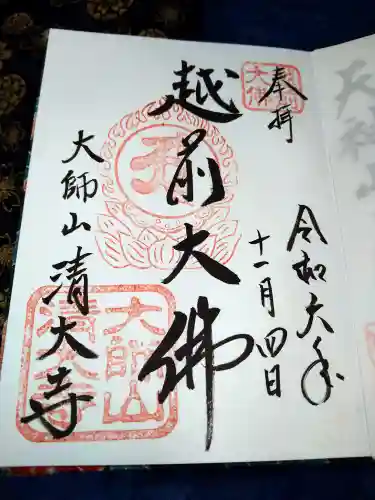 奉拝
令和六年
十一月四日
越前大佛
大師山清大寺
大師山
清大寺